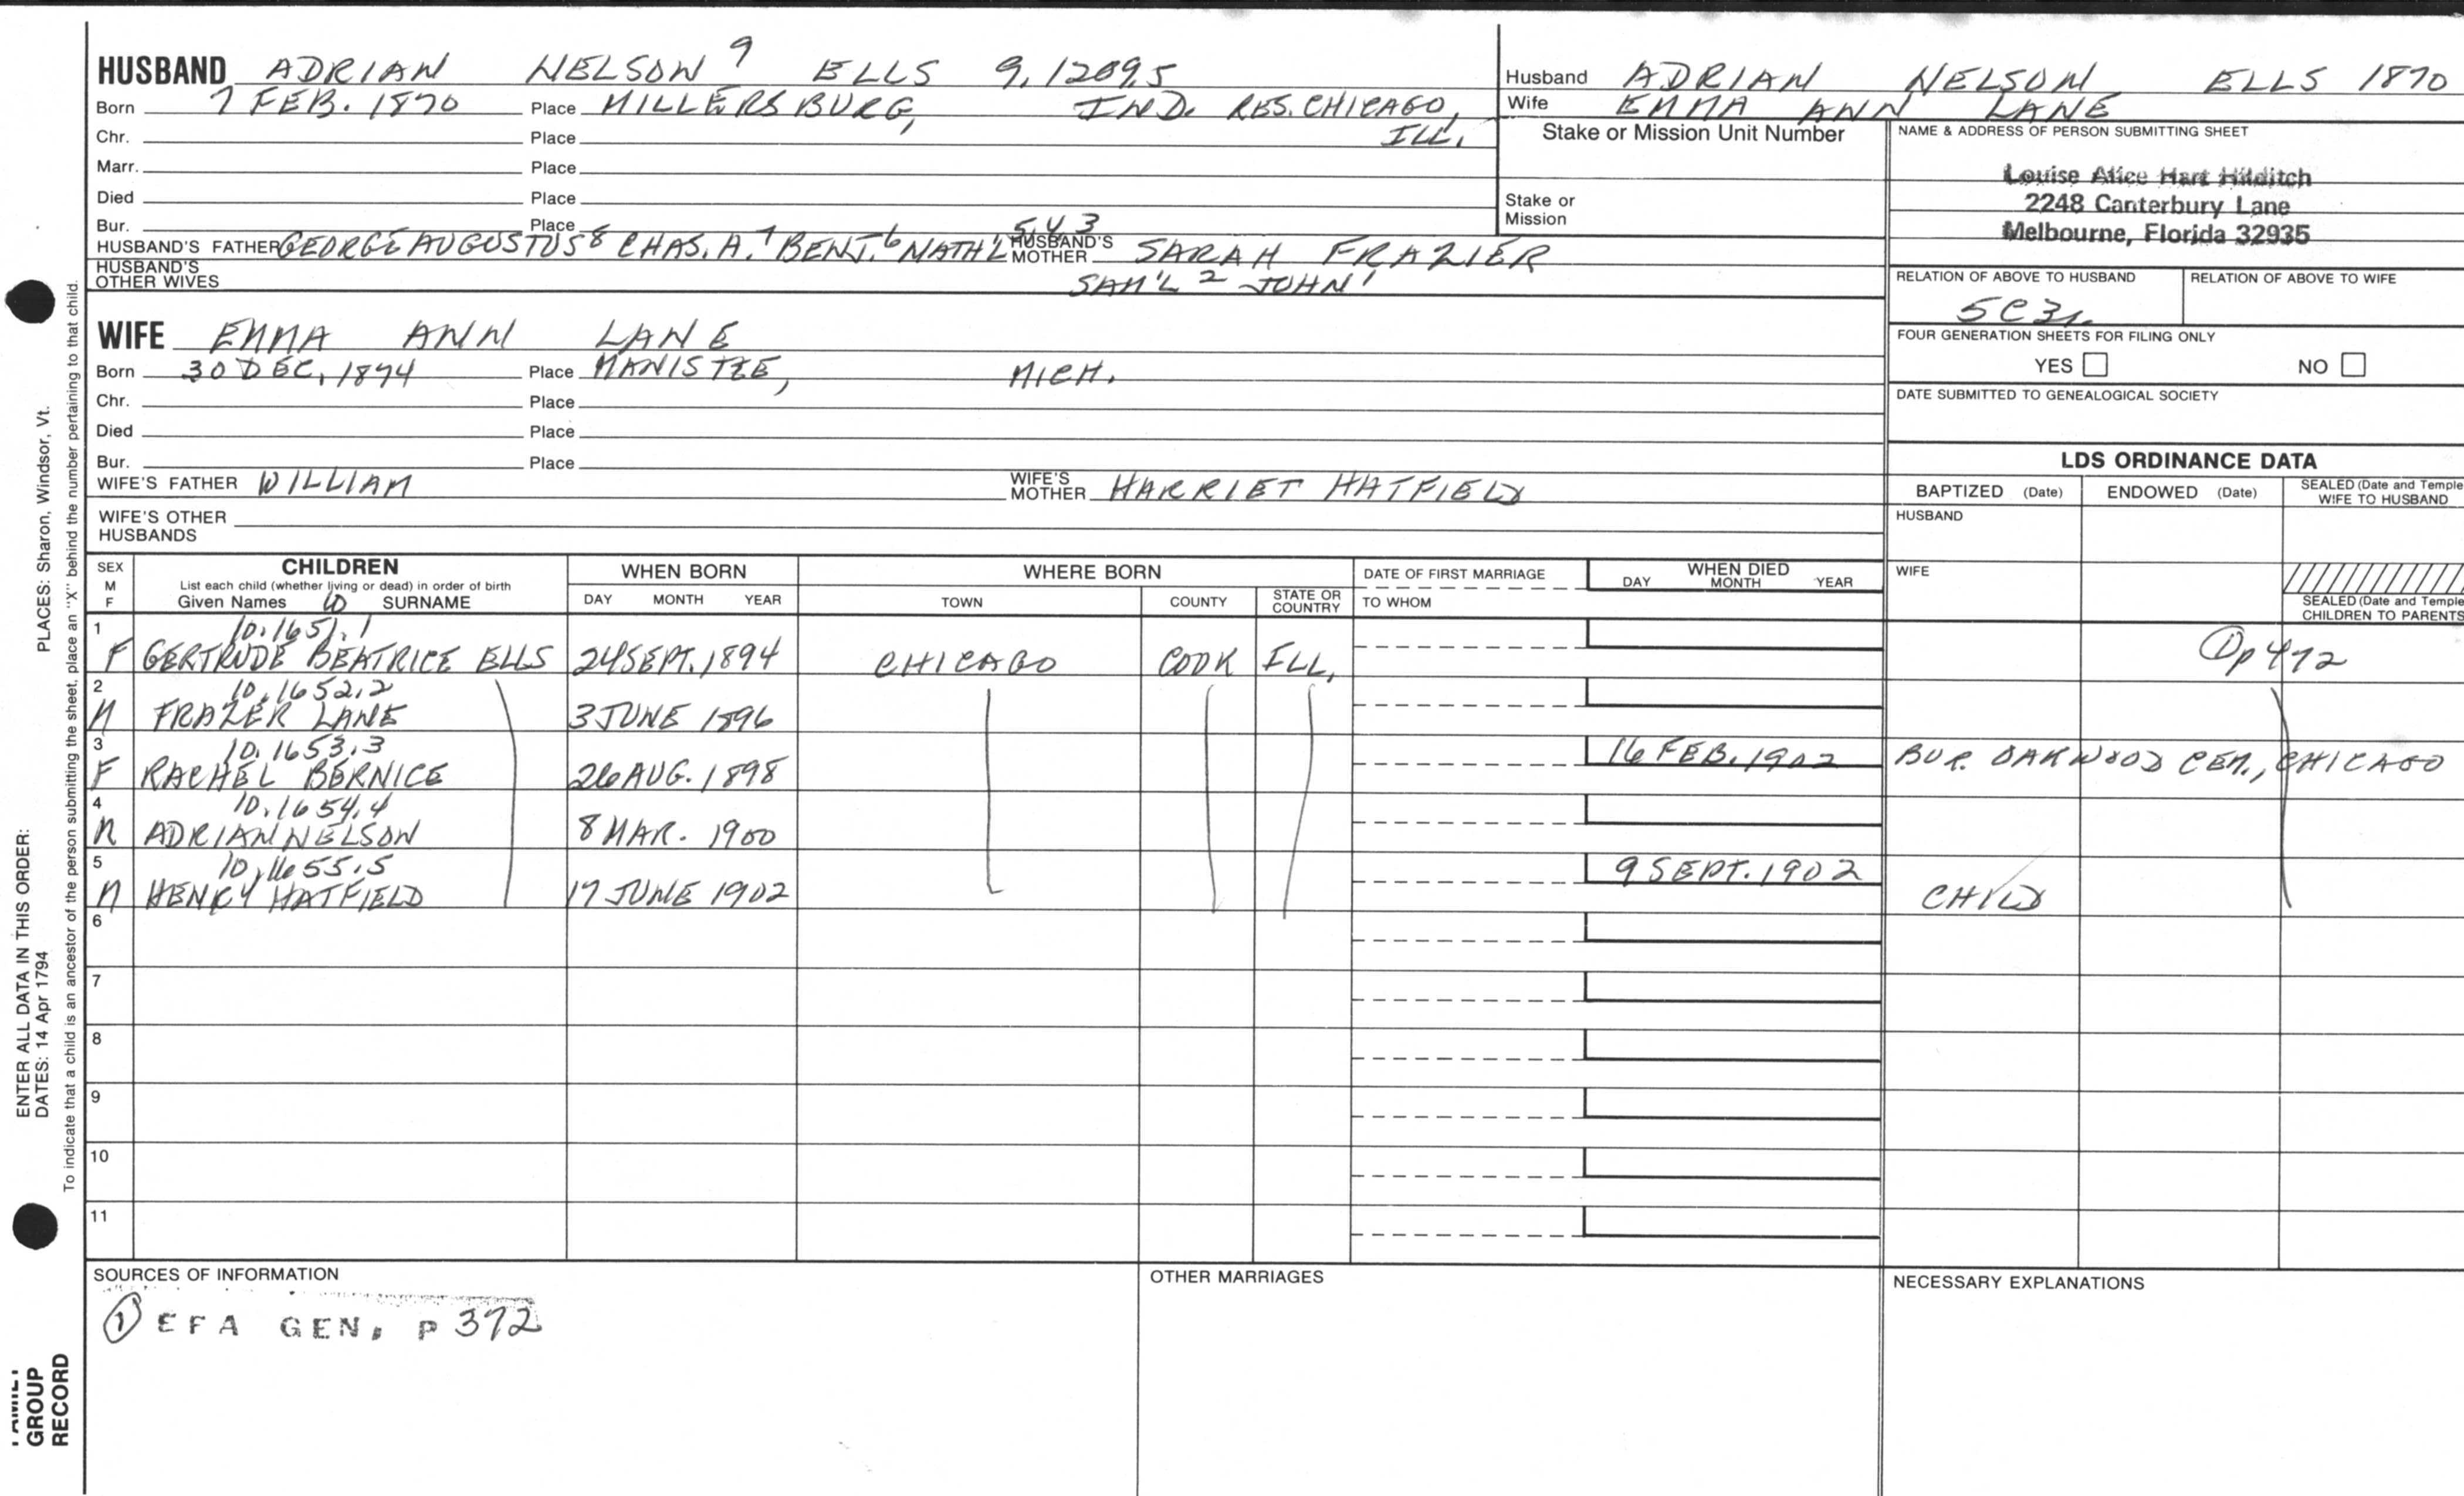 HUSBAND ADRIAN NELSON 9 ELLS 9.1209.5
Born 7 FEB. 1870 Place MILLERSBURG, IND. RES. CHICAGO, ILL.
Chr. Place
Marr. Place
Died Place
Bur. Place
HUSBAND'S FATHER GEORGE AUGUSTUS 8 CHAS. A. 7 BENJ. 6 NATH'L 5 4 3 HUSBAND'S MOTHER SARAH FRAZIER
HUSBAND'S OTHER WIVES SAM'L 2 JOHN 1
WIFE EMMA ANN LANE
Born 30 DEC, 1874 Place MANISTEE, MICH.
Chr. Place
Died Place
Bur. Place
WIFE'S FATHER WILLIAM WIFE'S MOTHER HARRIET HATFIELD
WIFE'S OTHER HUSBANDS
Husband ADRIAN NELSON ELLS 1870
Wife EMMA ANN LANE
Stake or Mission Unit Number
Stake or Mission
NAME & ADDRESS OF PERSON SUBMITTING SHEET
Louise Alice Hart Hilditch
2248 Canterbury Lane
Melbourne, Florida 32935
RELATION OF ABOVE TO HUSBAND RELATION OF ABOVE TO WIFE
5C3r.
FOUR GENERATION SHEETS FOR FILING ONLY
YES NO
DATE SUBMITTED TO GENEALOGICAL SOCIETY
LDS ORDINANCE DATA
BAPTIZED (Date) ENDOWED (Date) SEALED (Date and Temple) WIFE TO HUSBAND
HUSBAND
WIFE
SEALED (Date and Temple) CHILDREN TO PARENTS
SEX M F
CHILDREN
List each child (whether living or dead) in order of birth
Given Names SURNAME
WHEN BORN
DAY MONTH YEAR
WHERE BORN
TOWN COUNTY STATE OR COUNTRY
DATE OF FIRST MARRIAGE
TO WHOM
WHEN DIED
DAY MONTH YEAR
1 10.1651.1
F GERTRUDE BEATRICE ELLS 24 SEPT. 1894 CHICAGO COOK ILL. 1 p 472
2 10.1652.2
M FRAZER LANE 3 JUNE 1896
3 10.1653.3
F RACHEL BERNICE 26 AUG. 1898 16 FEB. 1902 BUR. OAKWOOD CEM., CHICAGO
4 10.1654.4
M ADRIAN NELSON 8 MAR. 1900
5 10.1655.5
M HENRY HATFIELD 17 JUNE 1902 9 SEPT. 1902 CHILD
6
7
8
9
10
11
SOURCES OF INFORMATION
1 EFA GEN, P 372
OTHER MARRIAGES
NECESSARY EXPLANATIONS
PLACES: Sharon, Windsor, Vt.
To indicate that a child is an ancestor of the person submitting the sheet, place an "X" behind the number pertaining to that child.
ENTER ALL DATA IN THIS ORDER:
DATES: 14 Apr 1794
FAMILY
GROUP
RECORD